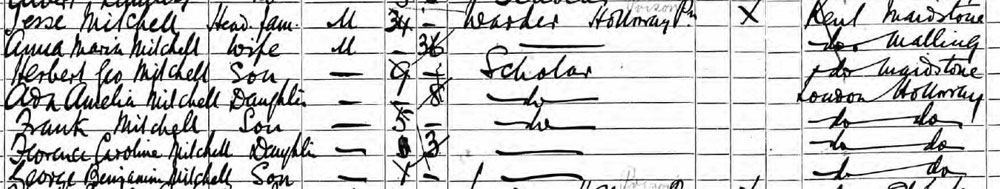 Jesse Mitchell Head fam. M 34 - Warder Holloway Pn X Kent Maidstone
Anna Maria Mitchell Wife M - 36 —— do Malling
Herbert Geo Mitchell Son — 9 - Scholar do Maidstone
Ada Amelia Mitchell Daughter — 8 do London Holloway
Frank Mitchell Son — 5 - do do do
Florence Caroline Mitchell Daughter — 3 —— do do
George Benjamin Mitchell Son — 1 - —— do do